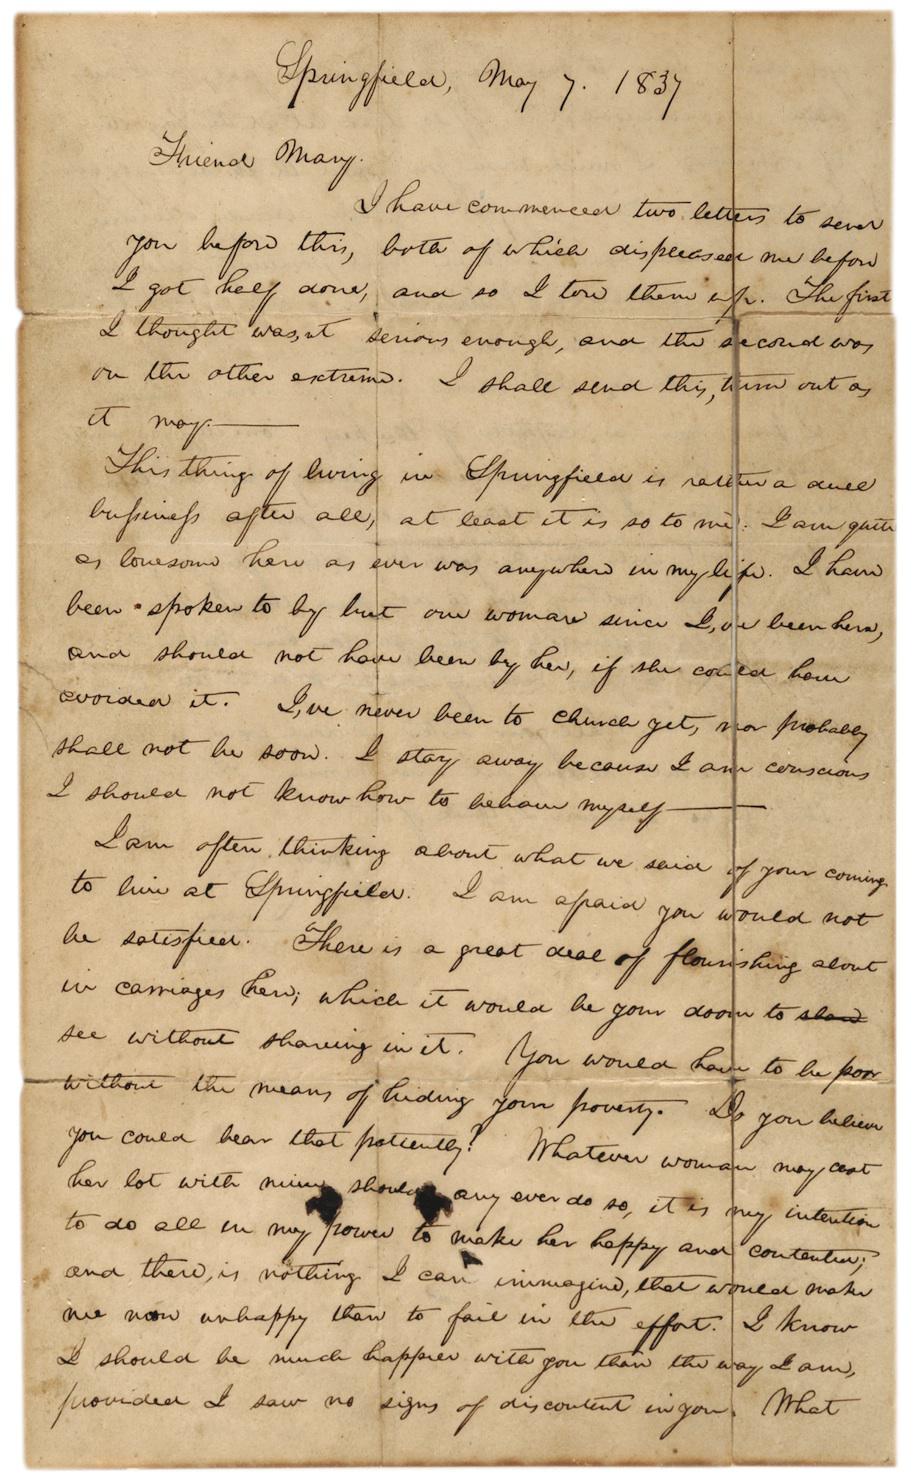 Springfield, May 7. 1837
Friend Mary.
I have commenced two letters to send
you before this, both of which displeased me before
I got half done, and so I tore them up. The first
I thought was,nt serious enough, and the second was
on the other extreme. I shall send this, turn out as
it may.——
This thing of living in Springfield is rather a dull
business after all, at least it is so to me. I am quite
as lonesome here as ever was anywhere in my life. I have
been spoken to by but one woman since I,ve been here,
and should not have been by her, if she could have
avoided it. I,ve never been to church yet, nor probably
shall not be soon. I stay away because I am conscious
I should not know how to behave myself——
I am often thinking about what we said of your coming
to live at Springfield. I am afraid you would not
be satisfied. There is a great deal of flourishing about
in carriages here; which it would be your doom to
see without shareing in it. You would have to be poor
without the means of hiding your poverty. Do you believe
you could bear that patiently? Whatever woman may cast
her lot with mine, should any ever do so, it is my intention
to do all in my power to make her happy and contented;
and there, is nothing I can immagine, that would make
me more unhappy than to fail in the effort. I know
I should be much happier with you than the way I am,
provided I saw no signs of discontent in you. What